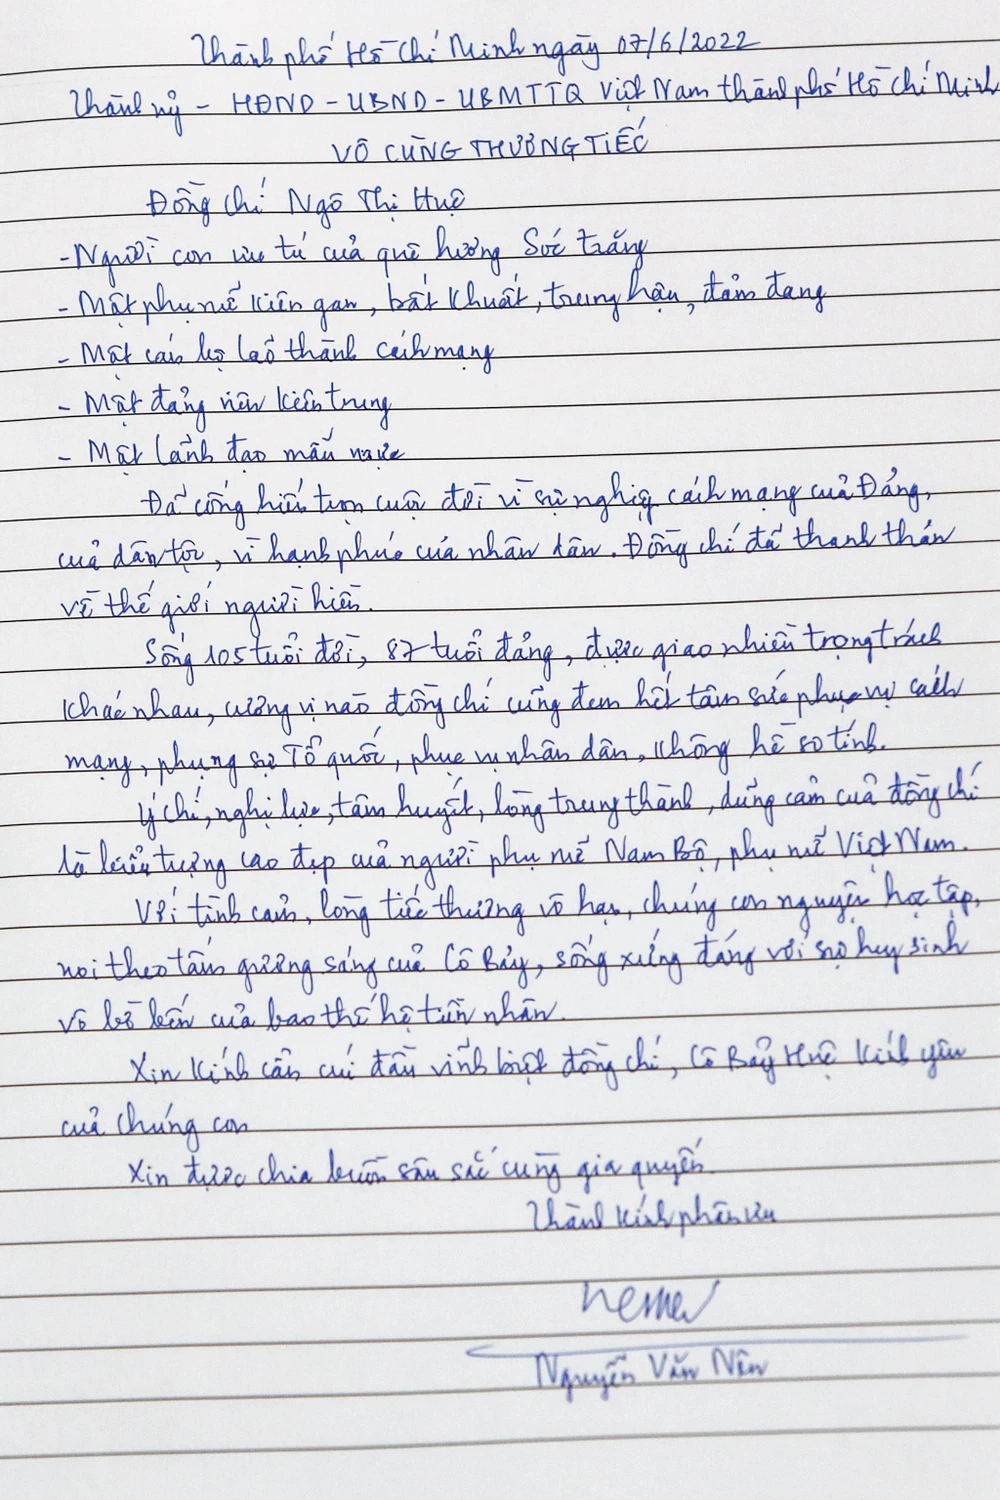 Thành phố Hồ Chí Minh ngày 07/6/2022
Thành ủy - HĐND - UBND - UBMTTQ Việt Nam thành phố Hồ Chí Minh
VÔ CÙNG THƯƠNG TIẾC
Đồng chí Ngô Thị Huệ
- Người con ưu tú của quê hương Sóc trăng
- Một phụ nữ kiên gan, bất khuất, trung hậu, đảm đang
- Một cán bộ lão thành cách mạng
- Một đảng viên kiên trung
- Một lãnh đạo mẫu mực
Đã cống hiến trọn cuộc đời vì sự nghiệp cách mạng của Đảng,
của dân tộc, vì hạnh phúc của nhân dân. Đồng chí đã thanh thản
về thế giới người hiền.
Sống 105 tuổi đời, 87 tuổi đảng, được giao nhiều trọng trách
khác nhau, cương vị nào đồng chí cũng đem hết tâm sức phục vụ cách
mạng, phụng sự Tổ quốc, phục vụ nhân dân, không hề so tính.
Ý chí, nghị lực, tâm huyết, lòng trung thành, dũng cảm của đồng chí
là biểu tượng cao đẹp của người phụ nữ Nam Bộ, phụ nữ Việt Nam.
Với tình cảm, lòng tiếc thương vô hạn, chúng con nguyện học tập,
noi theo tấm gương sáng của Cô Bảy, sống xứng đáng với sự hy sinh
vô bờ bến của bao thế hệ tiền nhân.
Xin kính cẩn cúi đầu vĩnh biệt đồng chí, Cô Bảy Huệ kính yêu
của chúng con
Xin được chia buồn sâu sắc cùng gia quyến.
Thành kính phân ưu
Nguyễn Văn Nên